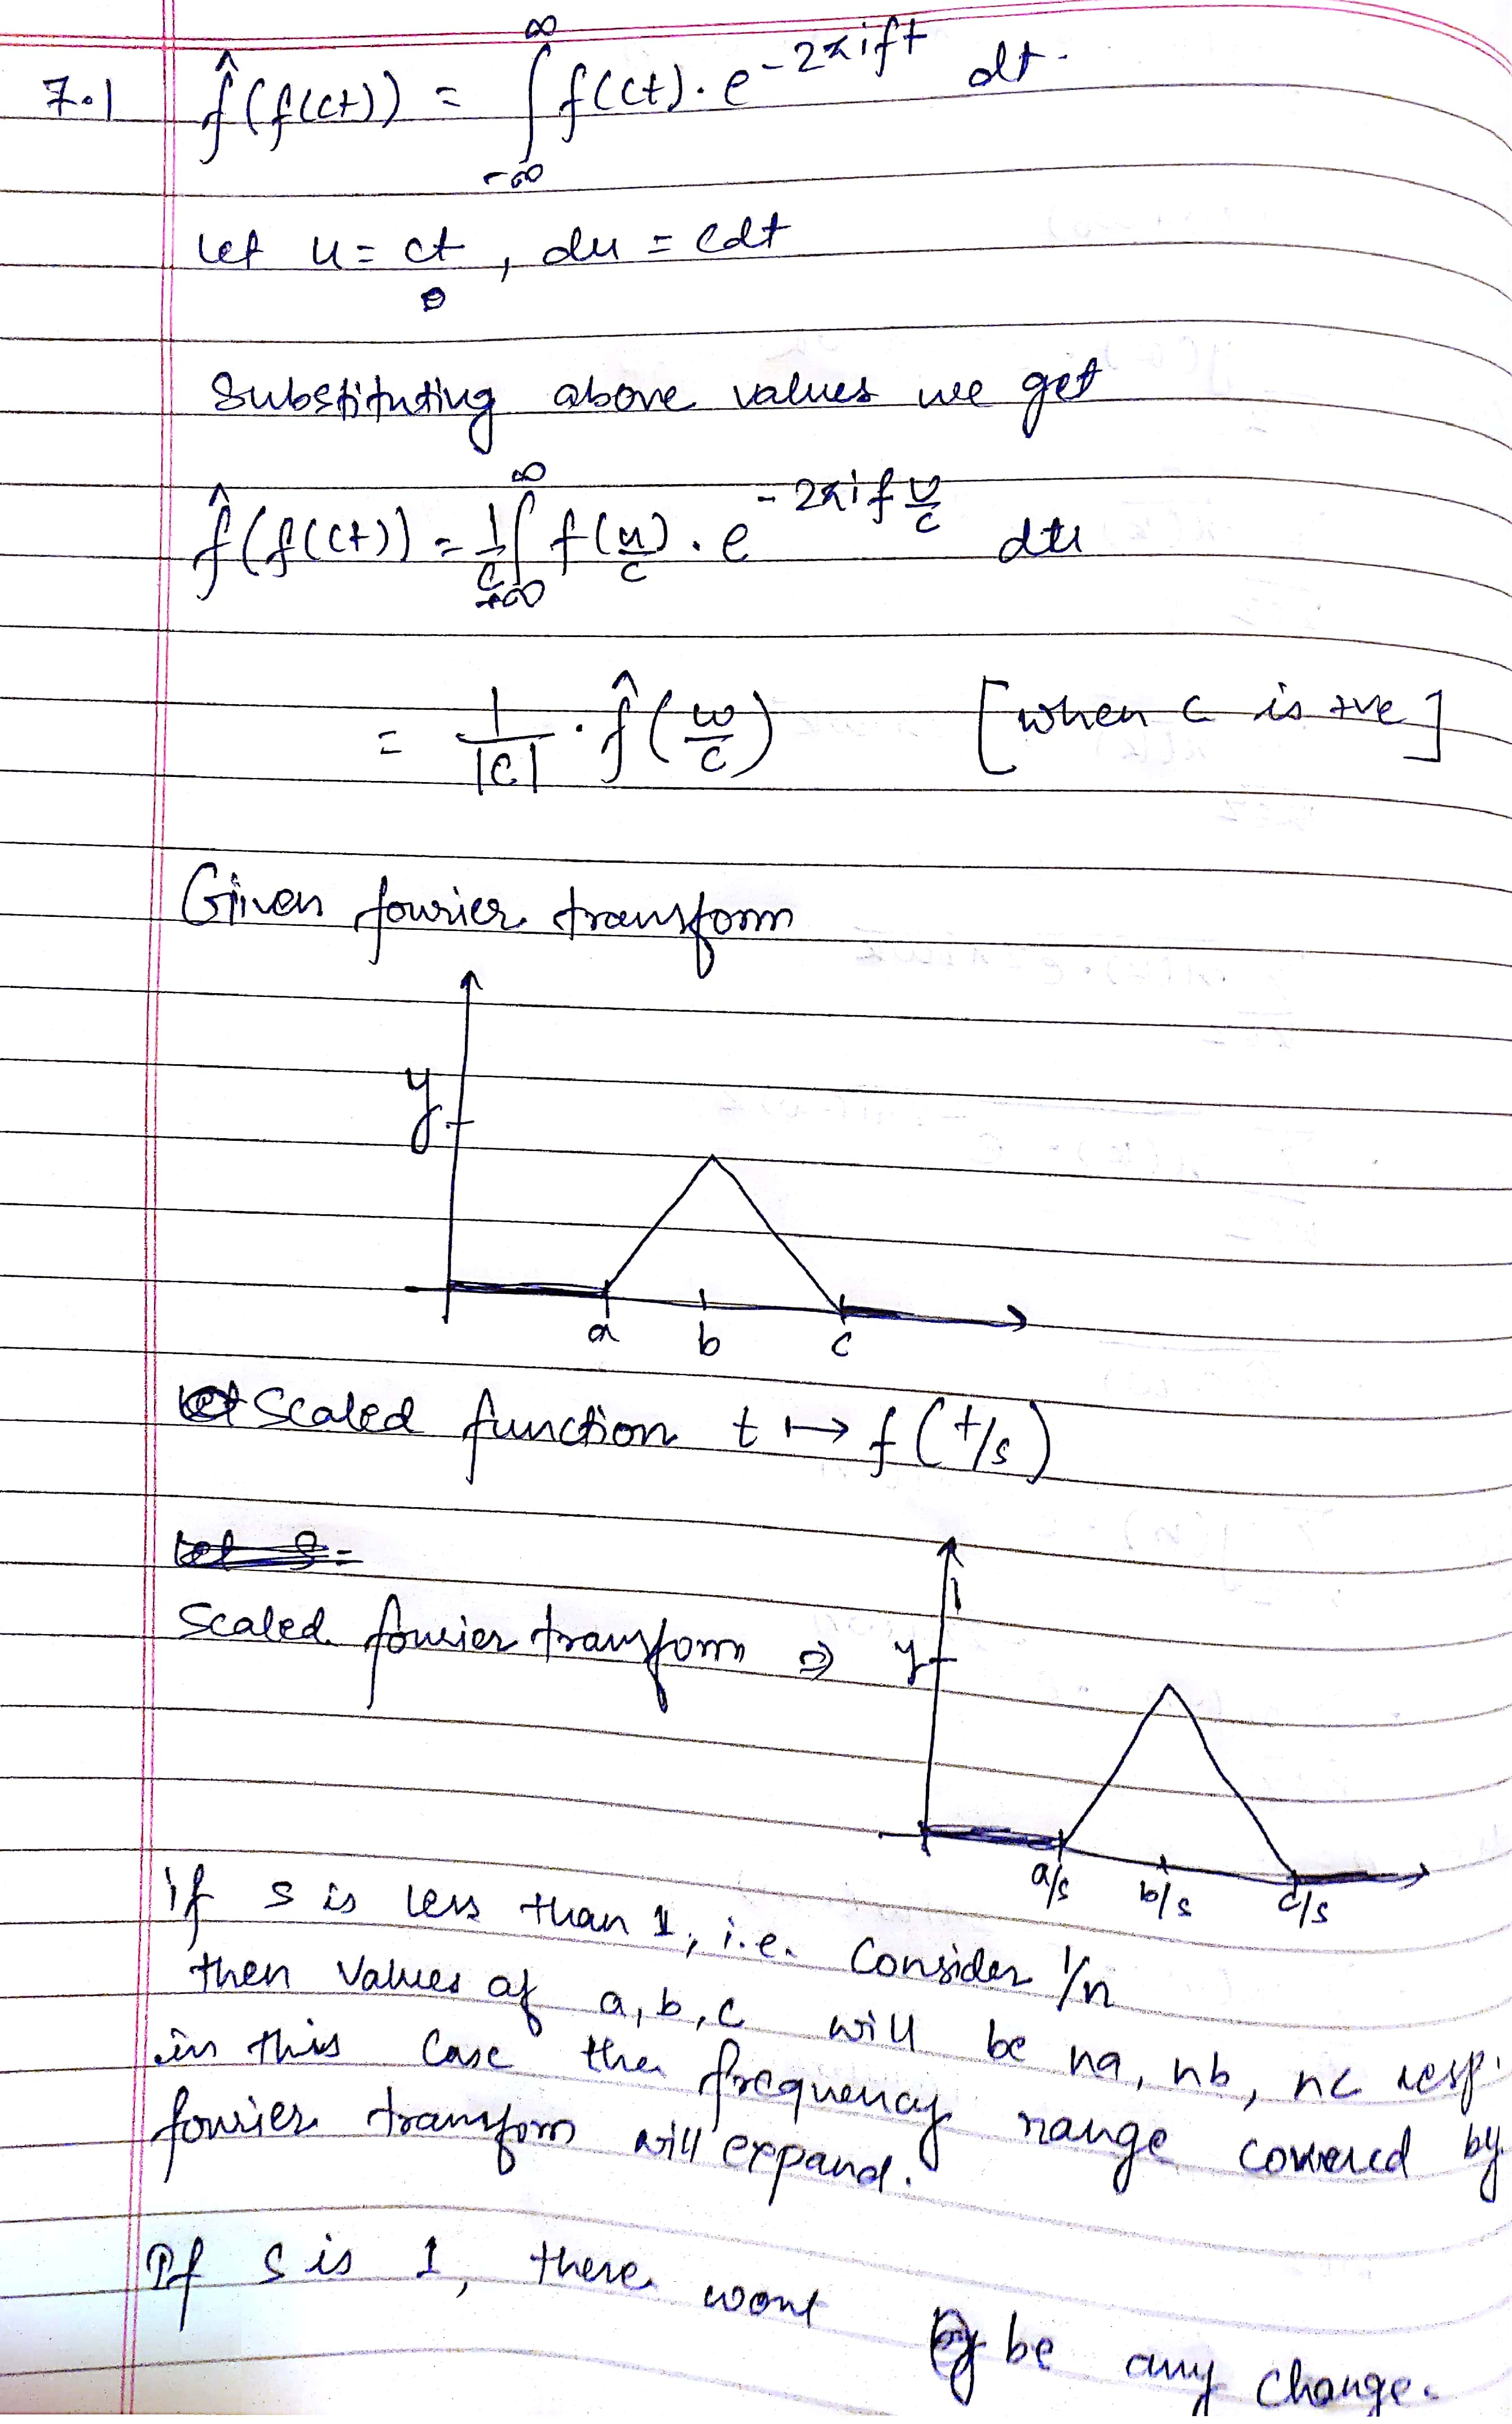 7.1 f̂(f(ct)) = ∫_{-∞}^{∞} f(ct). e^{-2πift} dt.
let u = ct, du = cdt
Substituting above values we get
f̂(f(ct)) = 1/c ∫_{-∞}^{∞} f(u/c). e^{-2πif u/c} du
= 1/|c| . f̂(ω/c) [when c is +ve]
Given fourier transform
y
a b c
Scaled function t ↦ f(t/s)
Scaled fourier transform ⇒ y
a/s b/s c/s
if s is less than 1, i.e. Consider 1/n
then values of a, b, c will be na, nb, nc resp.
in this case the frequency range covered by
fourier transform will expand.
If s is 1, there wont be any change.